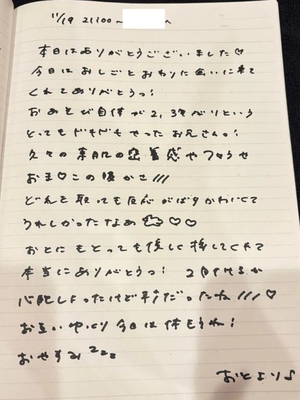 11/19 21:00〜　　へ
本日はありがとうございました♡
今日はおしごとおわりに会いに来て
くれてありがとうっ!
おあそび自体が2,3年ぶりという
とってもドキドキやったお兄さん。!
久々の素肌の密着感や
お♡この暖かさ///
どれを取っても反応がばりかわいくて
うれしかったなぁ♡♡
おとにもとっても優しく接してくれて
本当にありがとうっ! 2
心配しよったけど
お互いゆっくり今日は休もうね!
おやすみzzz
おとより♪